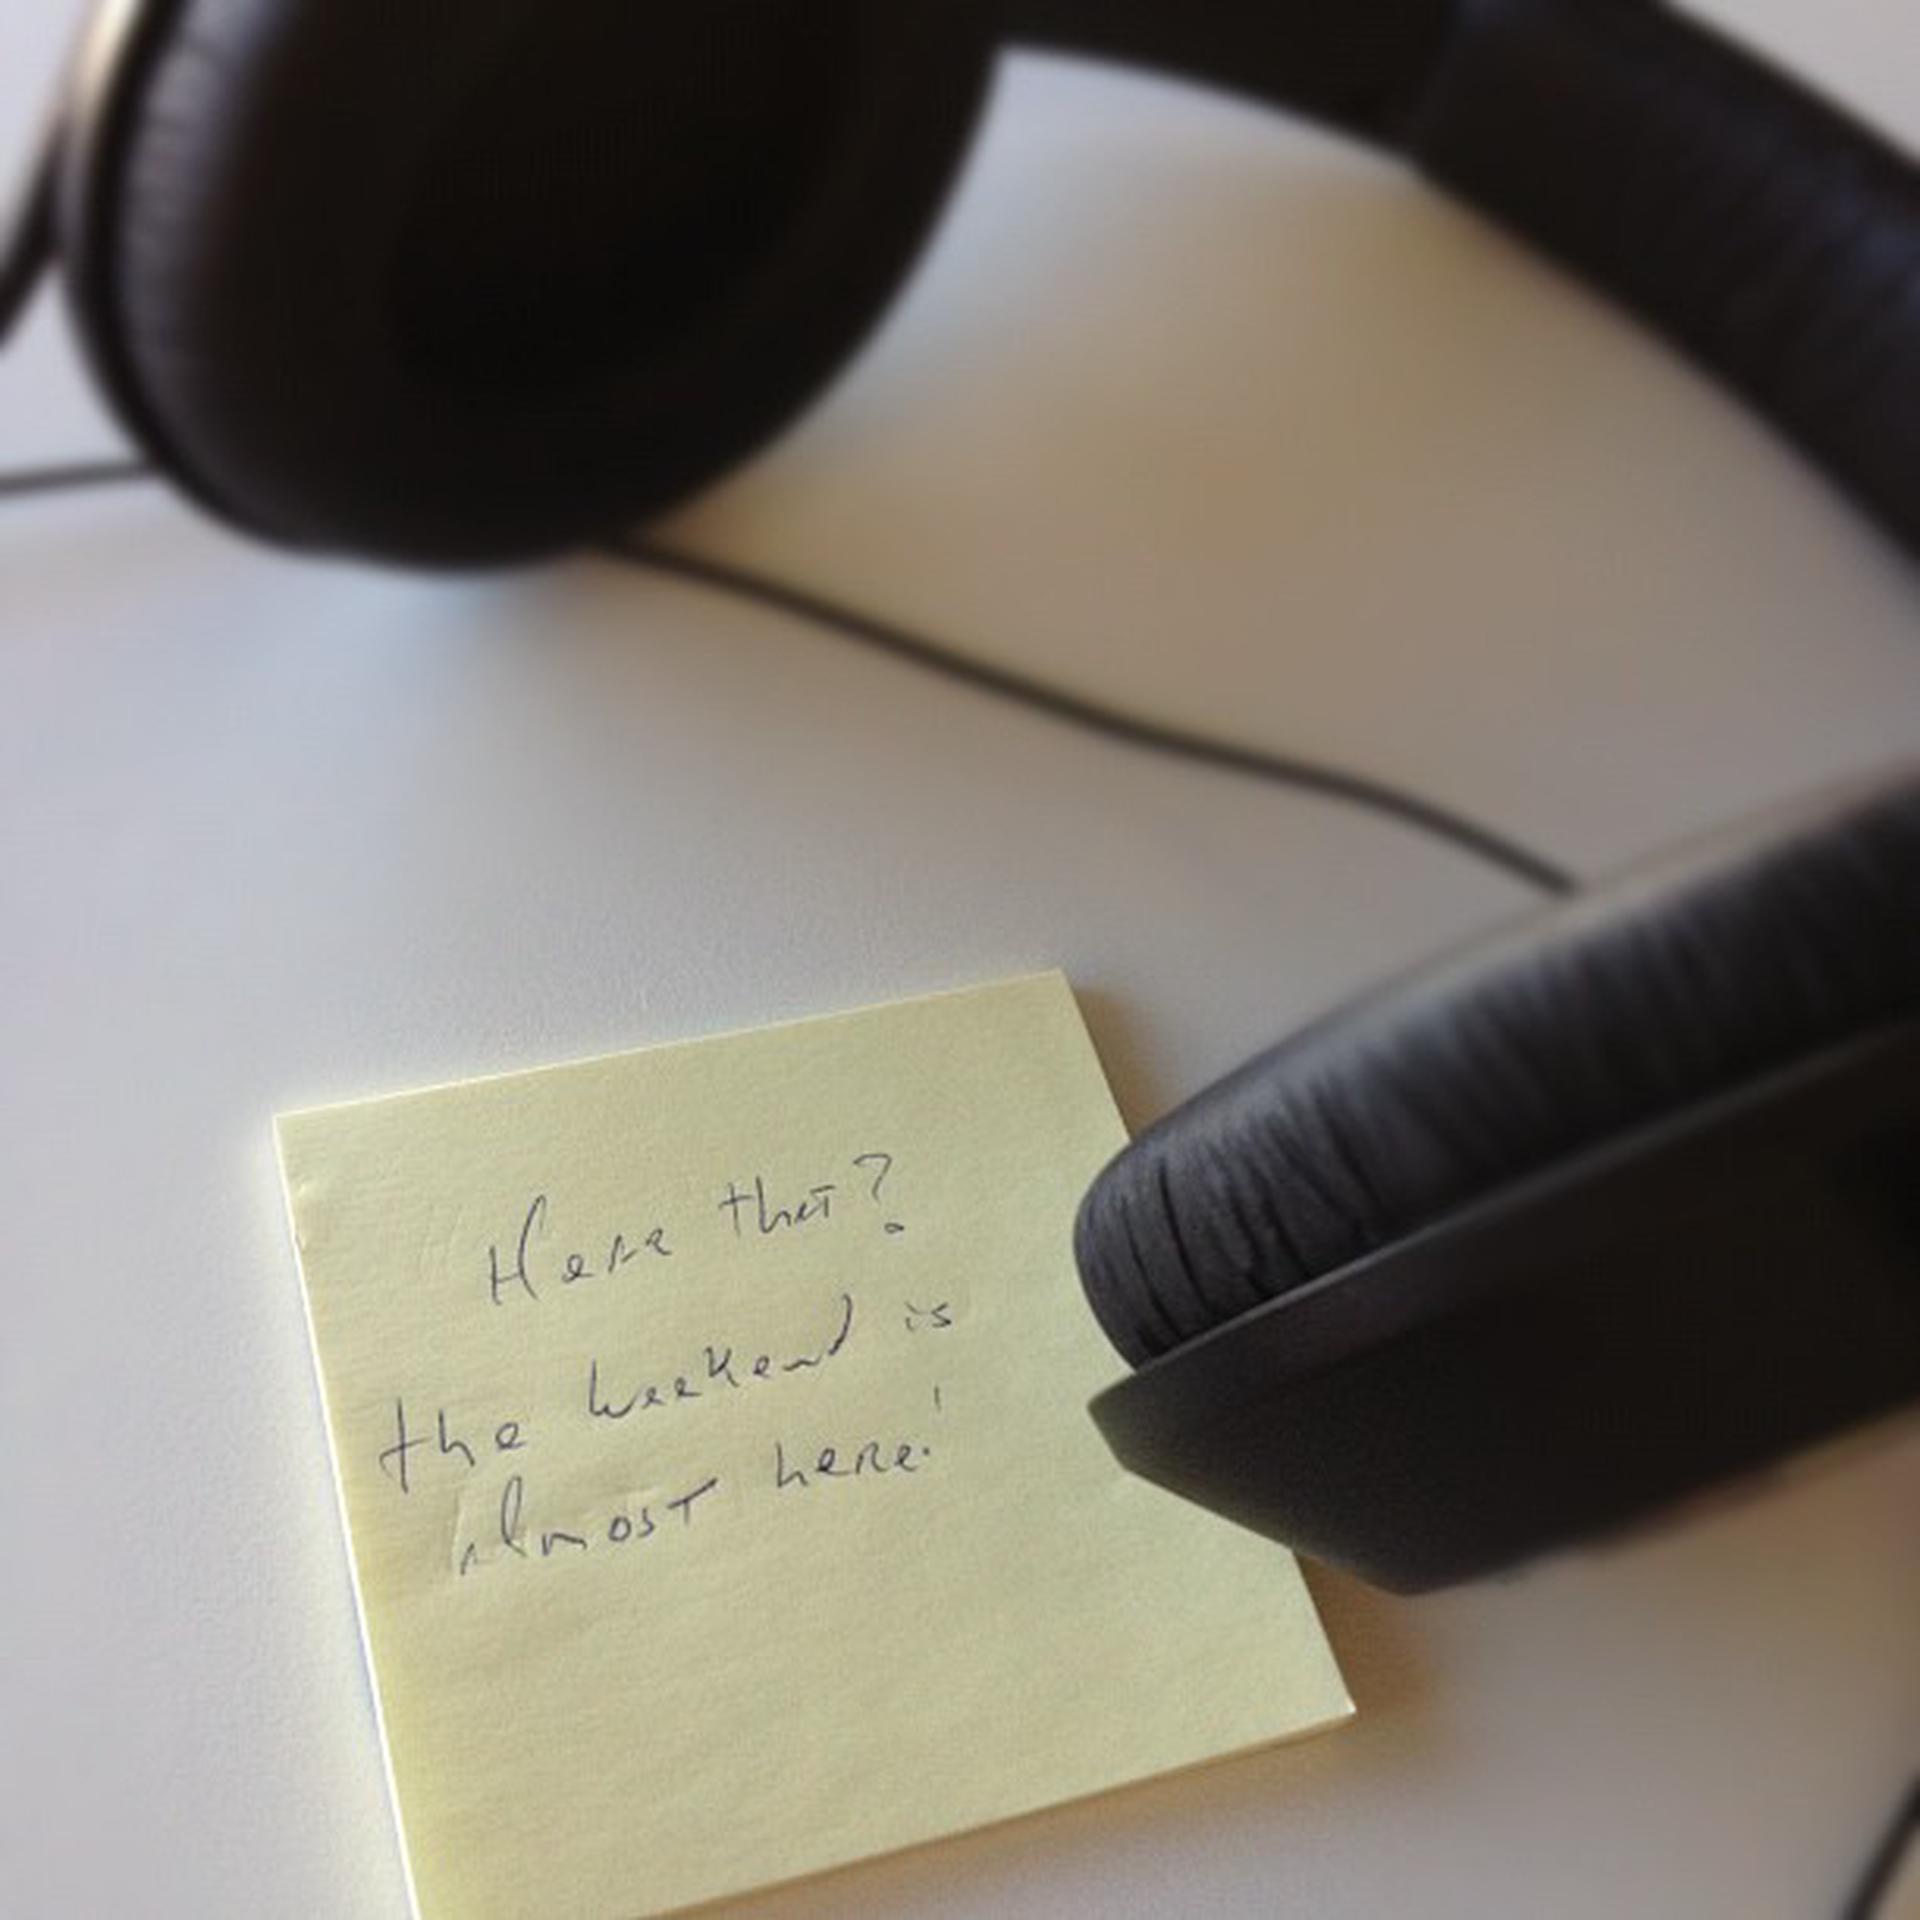 Here that?
the weekend is
almost here!